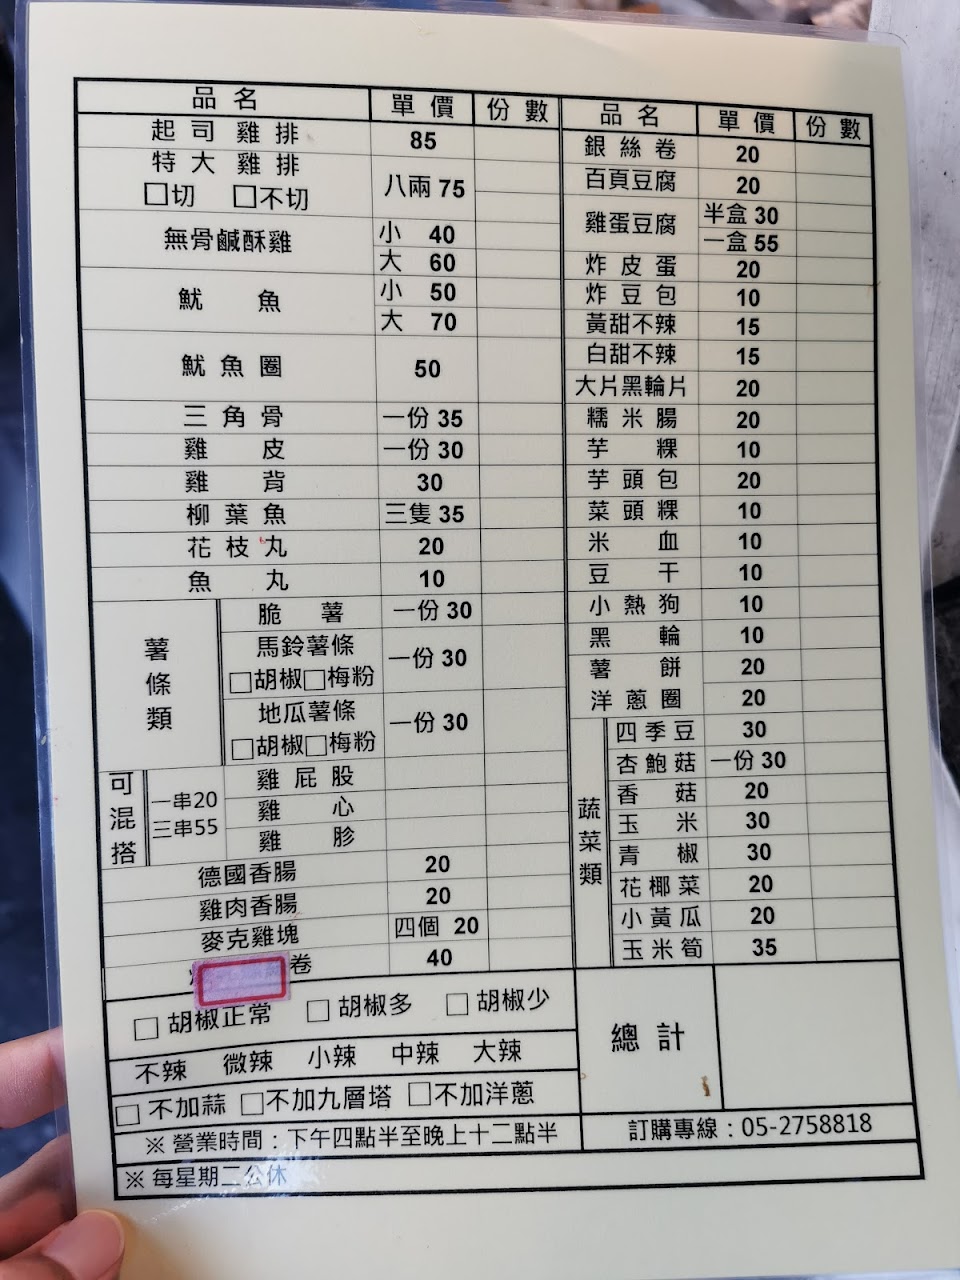 品名 單價 份數
起司雞排 85
特大雞排 八兩 75
□切 □不切
無骨鹹酥雞 小 40
大 60
魷魚 小 50
大 70
魷魚圈 50
三角骨 一份 35
雞皮 一份 30
雞背 30
柳葉魚 三隻 35
花枝丸 20
魚丸 10
薯條類
脆薯 一份 30
馬鈴薯條 一份 30
□胡椒□梅粉
地瓜薯條 一份 30
□胡椒□梅粉
可混搭
一串20
三串55
雞屁股
雞心
雞胗
德國香腸 20
雞肉香腸 20
麥克雞塊 四個 20
卷 40
□ 胡椒正常 □ 胡椒多 □ 胡椒少
不辣 微辣 小辣 中辣 大辣
□ 不加蒜 □不加九層塔 □不加洋蔥
※ 營業時間：下午四點半至晚上十二點半
※ 每星期二公休
品名 單價 份數
銀絲卷 20
百頁豆腐 20
雞蛋豆腐 半盒 30
一盒 55
炸皮蛋 20
炸豆包 10
黃甜不辣 15
白甜不辣 15
大片黑輪片 20
糯米腸 20
芋粿 10
芋頭包 20
菜頭粿 10
米血 10
豆干 10
小熱狗 10
黑輪 10
薯餅 20
洋蔥圈 20
蔬菜類
四季豆 30
杏鮑菇 一份 30
香菇 20
玉米 30
青椒 30
花椰菜 20
小黃瓜 20
玉米筍 35
總計
訂購專線：05-2758818